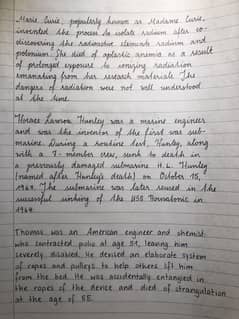 Marie Curie, popularly known as Madame Curie,
invented the process to isolate radium after co-
discovering the radioactive elements radium and
polonium. She died of aplastic anemia as a result
of prolonged exposure to ionizing radiation
emanating from her research materials. The
dangers of radiation were not well understood
at the time.
Horace Lawson Hunley was a marine engineer
and was the inventor of the first war sub-
marine. During a routine test, Hunley, along
with a 7-member crew, sunk to death in
a previously damaged submarine H.L. Hunley
(named after Hunley's death) on October 15,
The submarine was later used in the
successful sinking of the USS
Thomas was an American engineer and chemist
who contracted polio at age 51, leaving him
severely disabled. He devised an elaborate system
of ropes and pulleys to help others lift him
from the bed. He was accidentally entangled in
the ropes of the device and died of strangulation
at the age of 55.